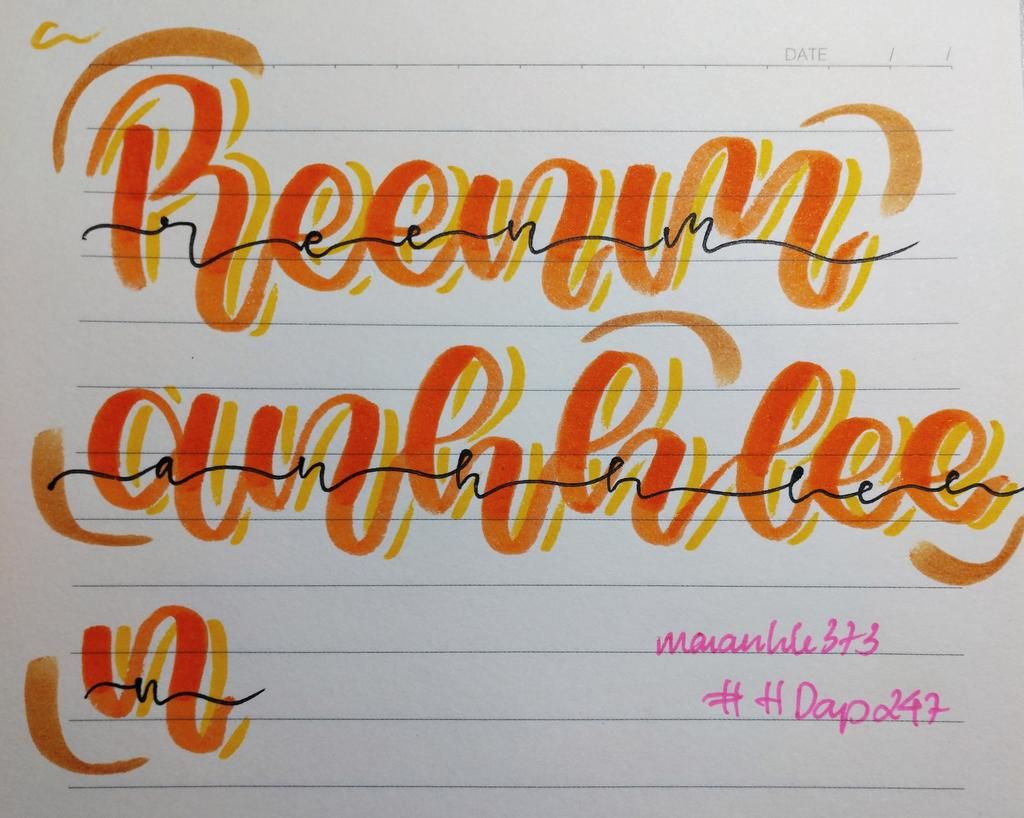 DATE / /
Reenm
reenm
anhhlee
anhhlee
n
n
maranhle373
# HDapa247